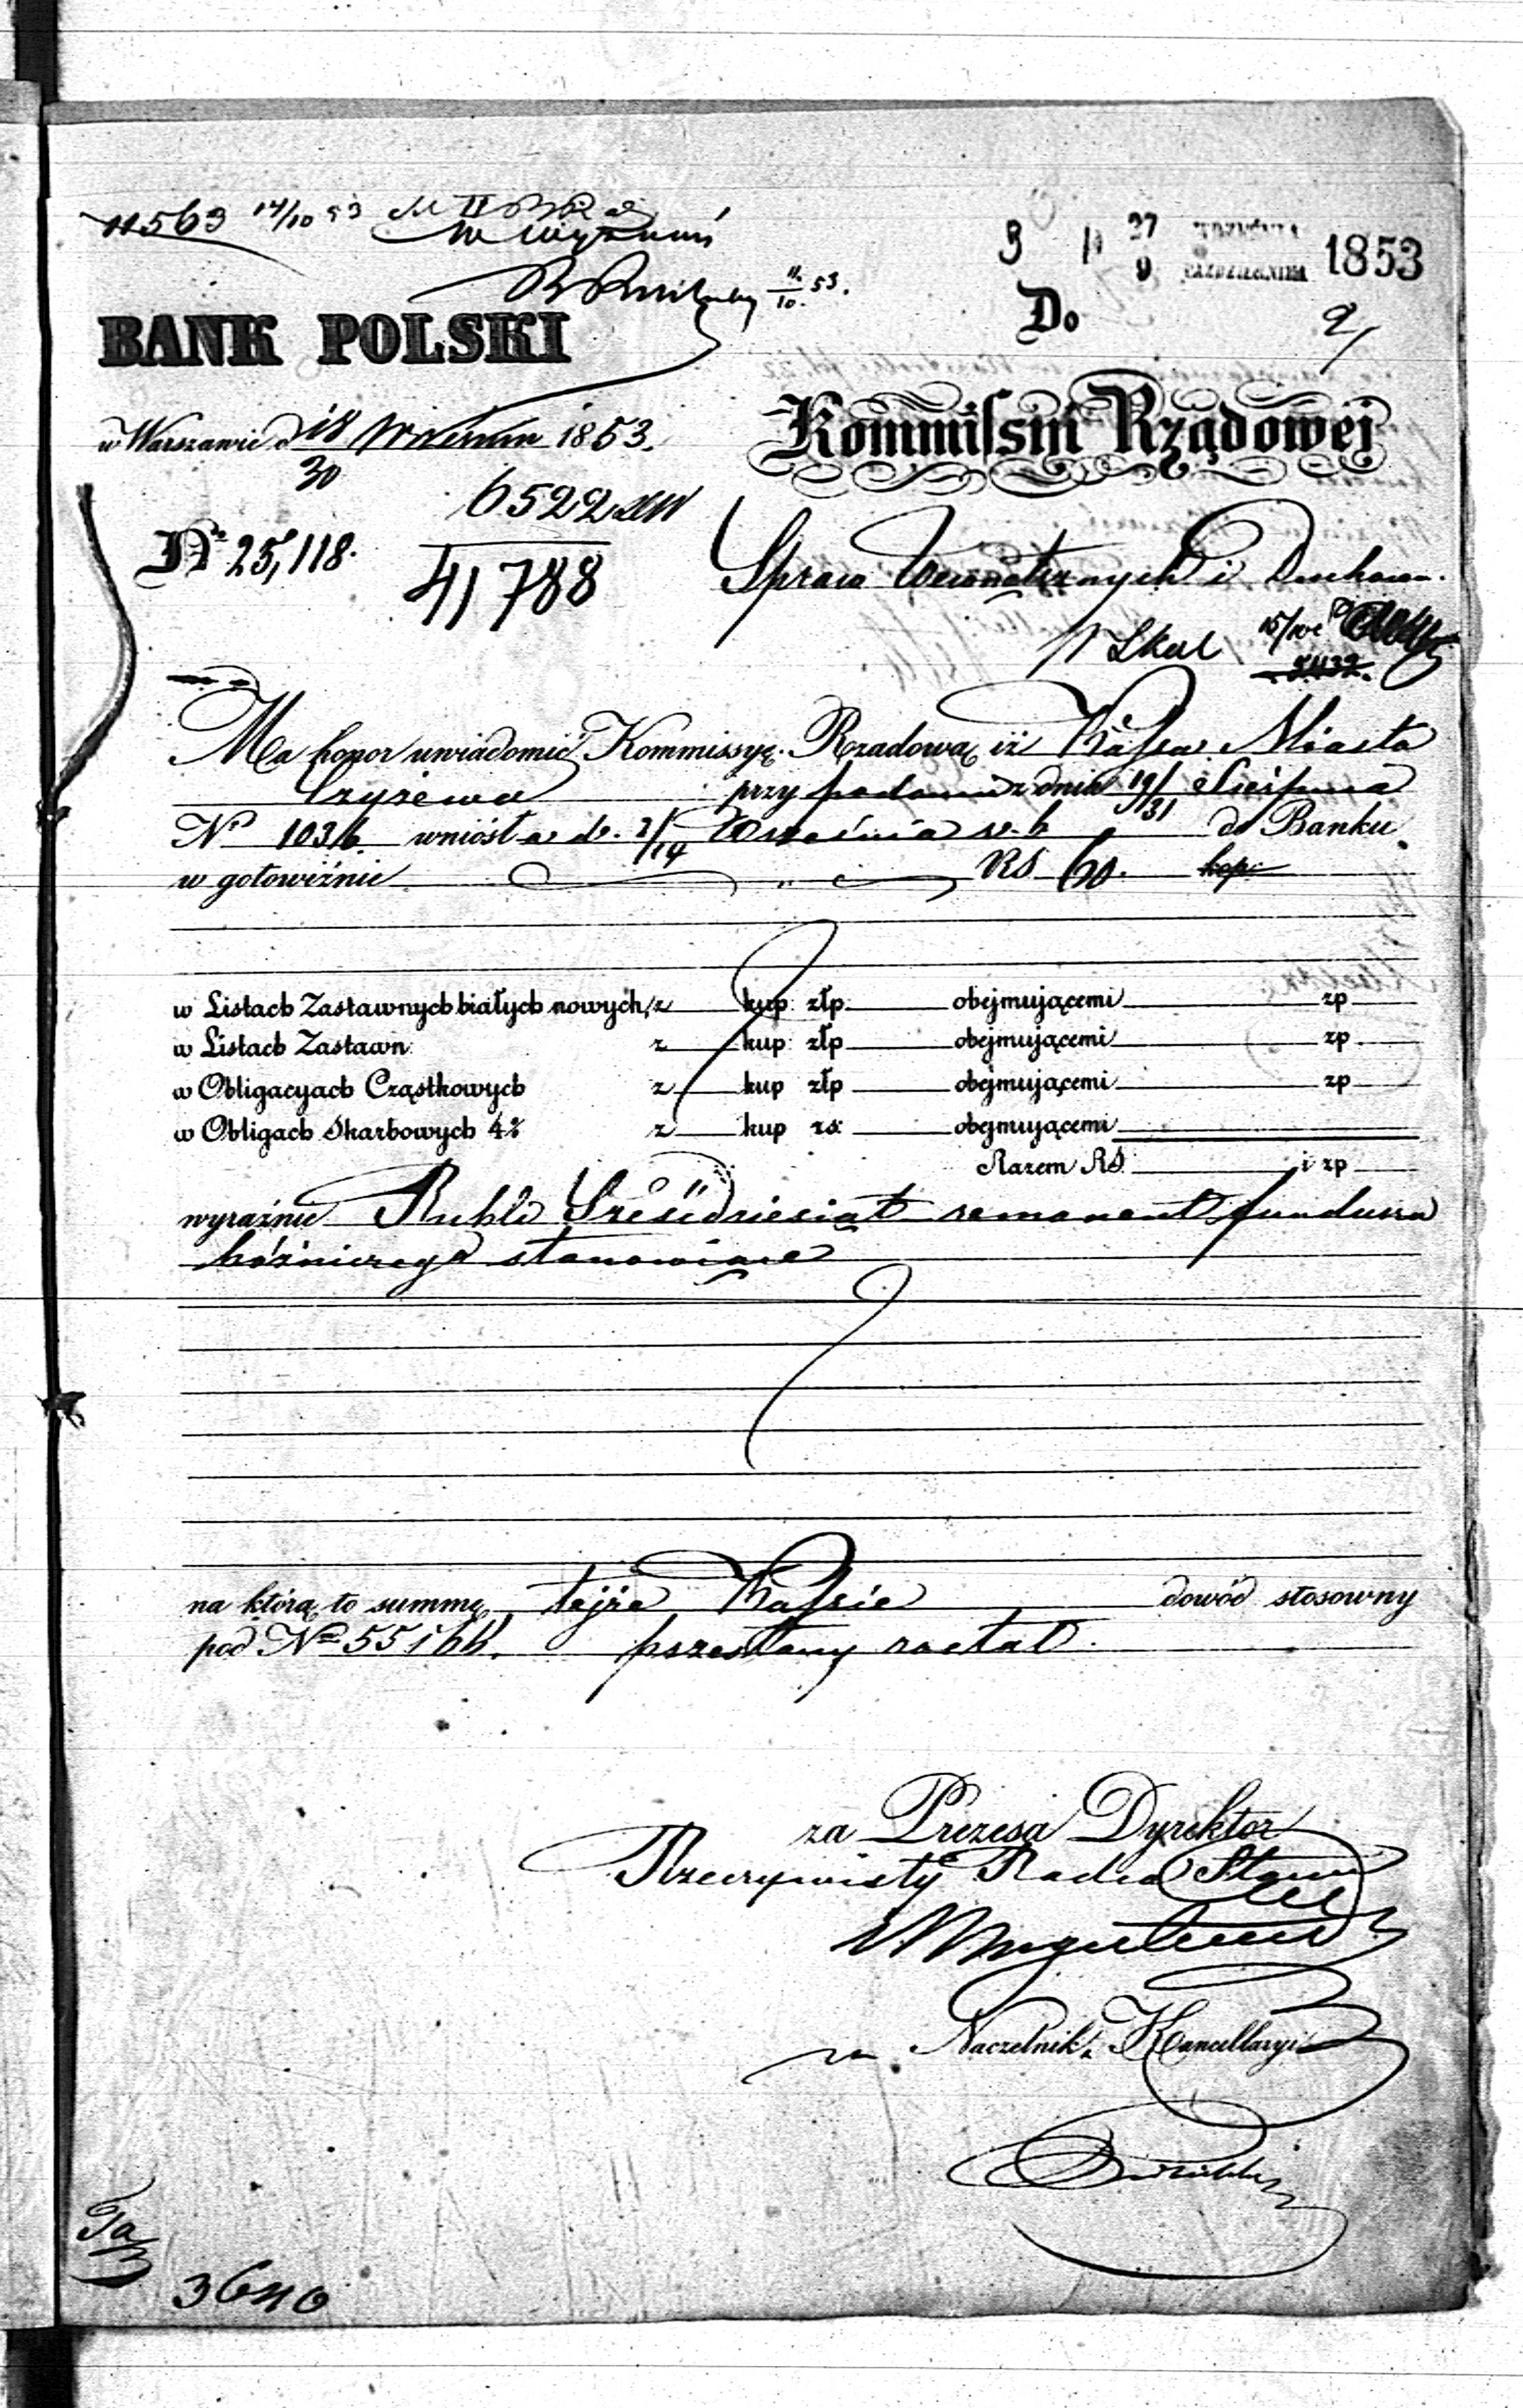 11563 14/10 53
1853
11/10 53.
Do
2/
BANK POLSKI
w Warszawie d 18/30 Września 1853.
Kommissyi Rządowej
6522
41788
Nr 25,118.
Spraw Wewnętrznych i Duchown.
Skal
Ma honor uwiadomić Kommissyę Rządową iż Kassa Miasta
Czyżewa przy podaniu z dnia 19/31 Sierpnia
No 1036. wniosła d. 2/14 Września r. b. do Banku
w gotowiźnie RS 60. kop:
w Listach Zastawnych białych nowych z kup: złp obejmującemi zp
w Listach Zastawn z kup: złp obejmującemi zp
w Obligacyach Cząstkowych z kup złp obejmującemi zp
w Obligach Skarbowych 4% z kup rs: obejmującemi
Razem RS i zp
wyraźnie Rubli Sześćdziesiąt remanent funduszu
bóżniczego stanowiące
na którą to summę tejże Kassie dowód stosowny
pod No 55166. przesłany został.
za Prezesa Dyrektor
Rzeczywisty Radca Stanu
za Naczelnik Kancellaryi
3640